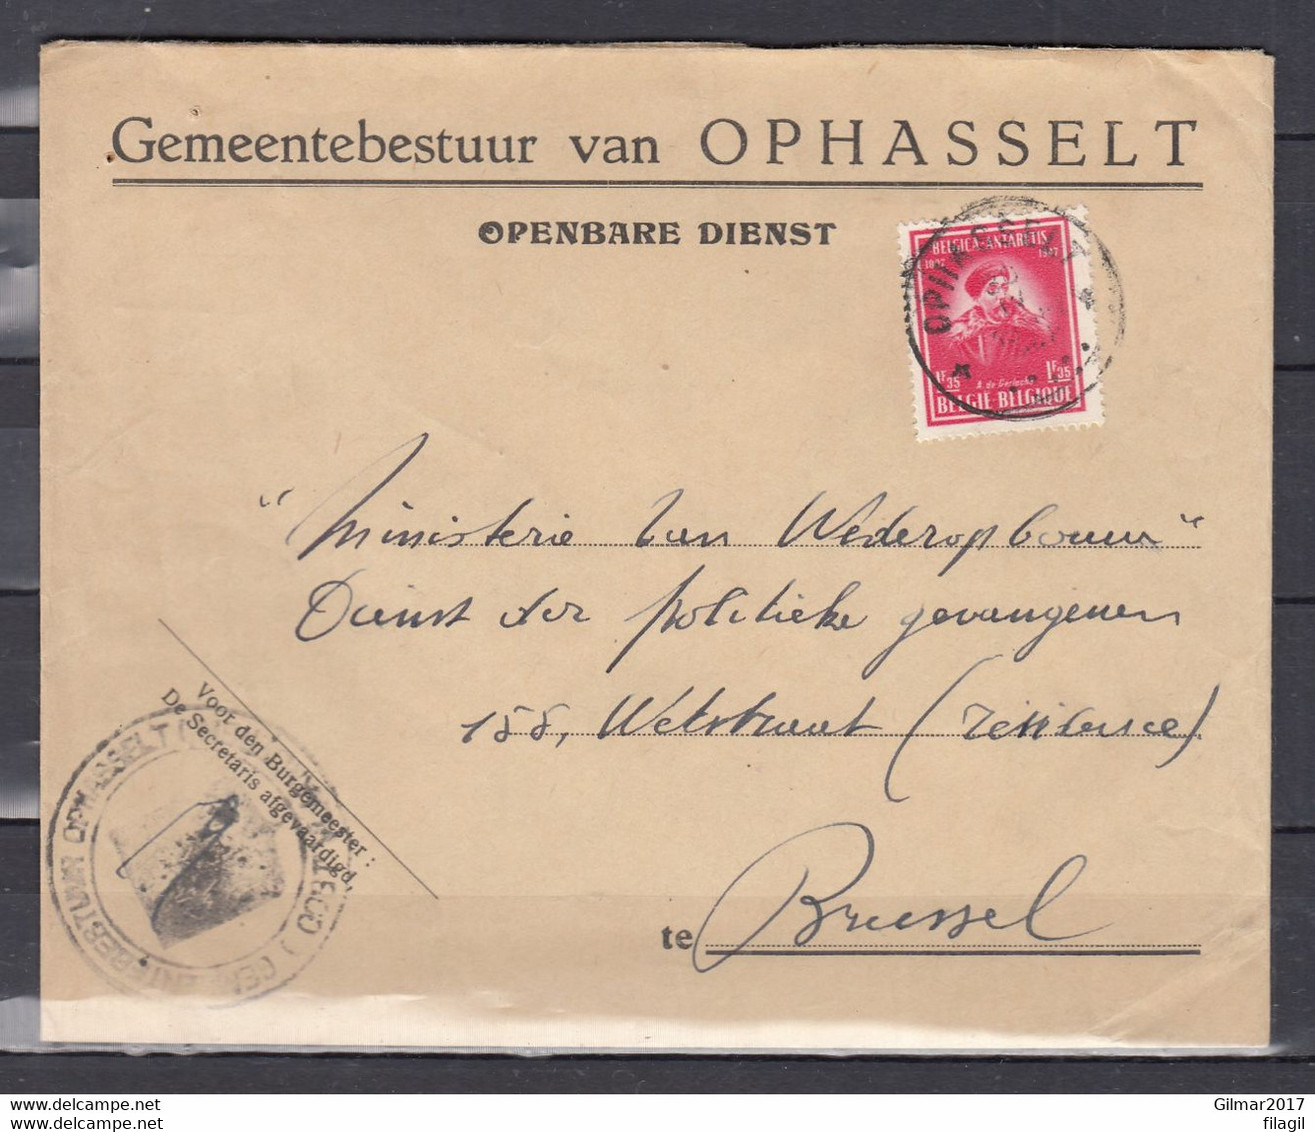 Gemeentebestuur van OPHASSELT
OPENBARE DIENST
OPHASSELT
BELGICA-ANTARCTIS
1897 1947
1F35 A. de Gerlache 1F35
BELGIE-BELGIQUE
"Ministerie van Wederopbouw"
Dienst der politieke gevangenen
155, Wetstraat (résidence)
te Brussel
Voor den Burgemeester:
De Secretaris afgevaardigd,
GEMEENTEBESTUUR OPHASSELT
www.delcampe.net
www.delcampe.net
Gilmar2017
filagil